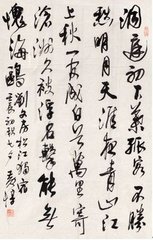 洞庭初下葉孤客不勝
愁明月天涯夜青山江
上秋一官成白首萬里寄
滄洲久被浮名繫能無
愧海鷗 劉文房松江獨宿